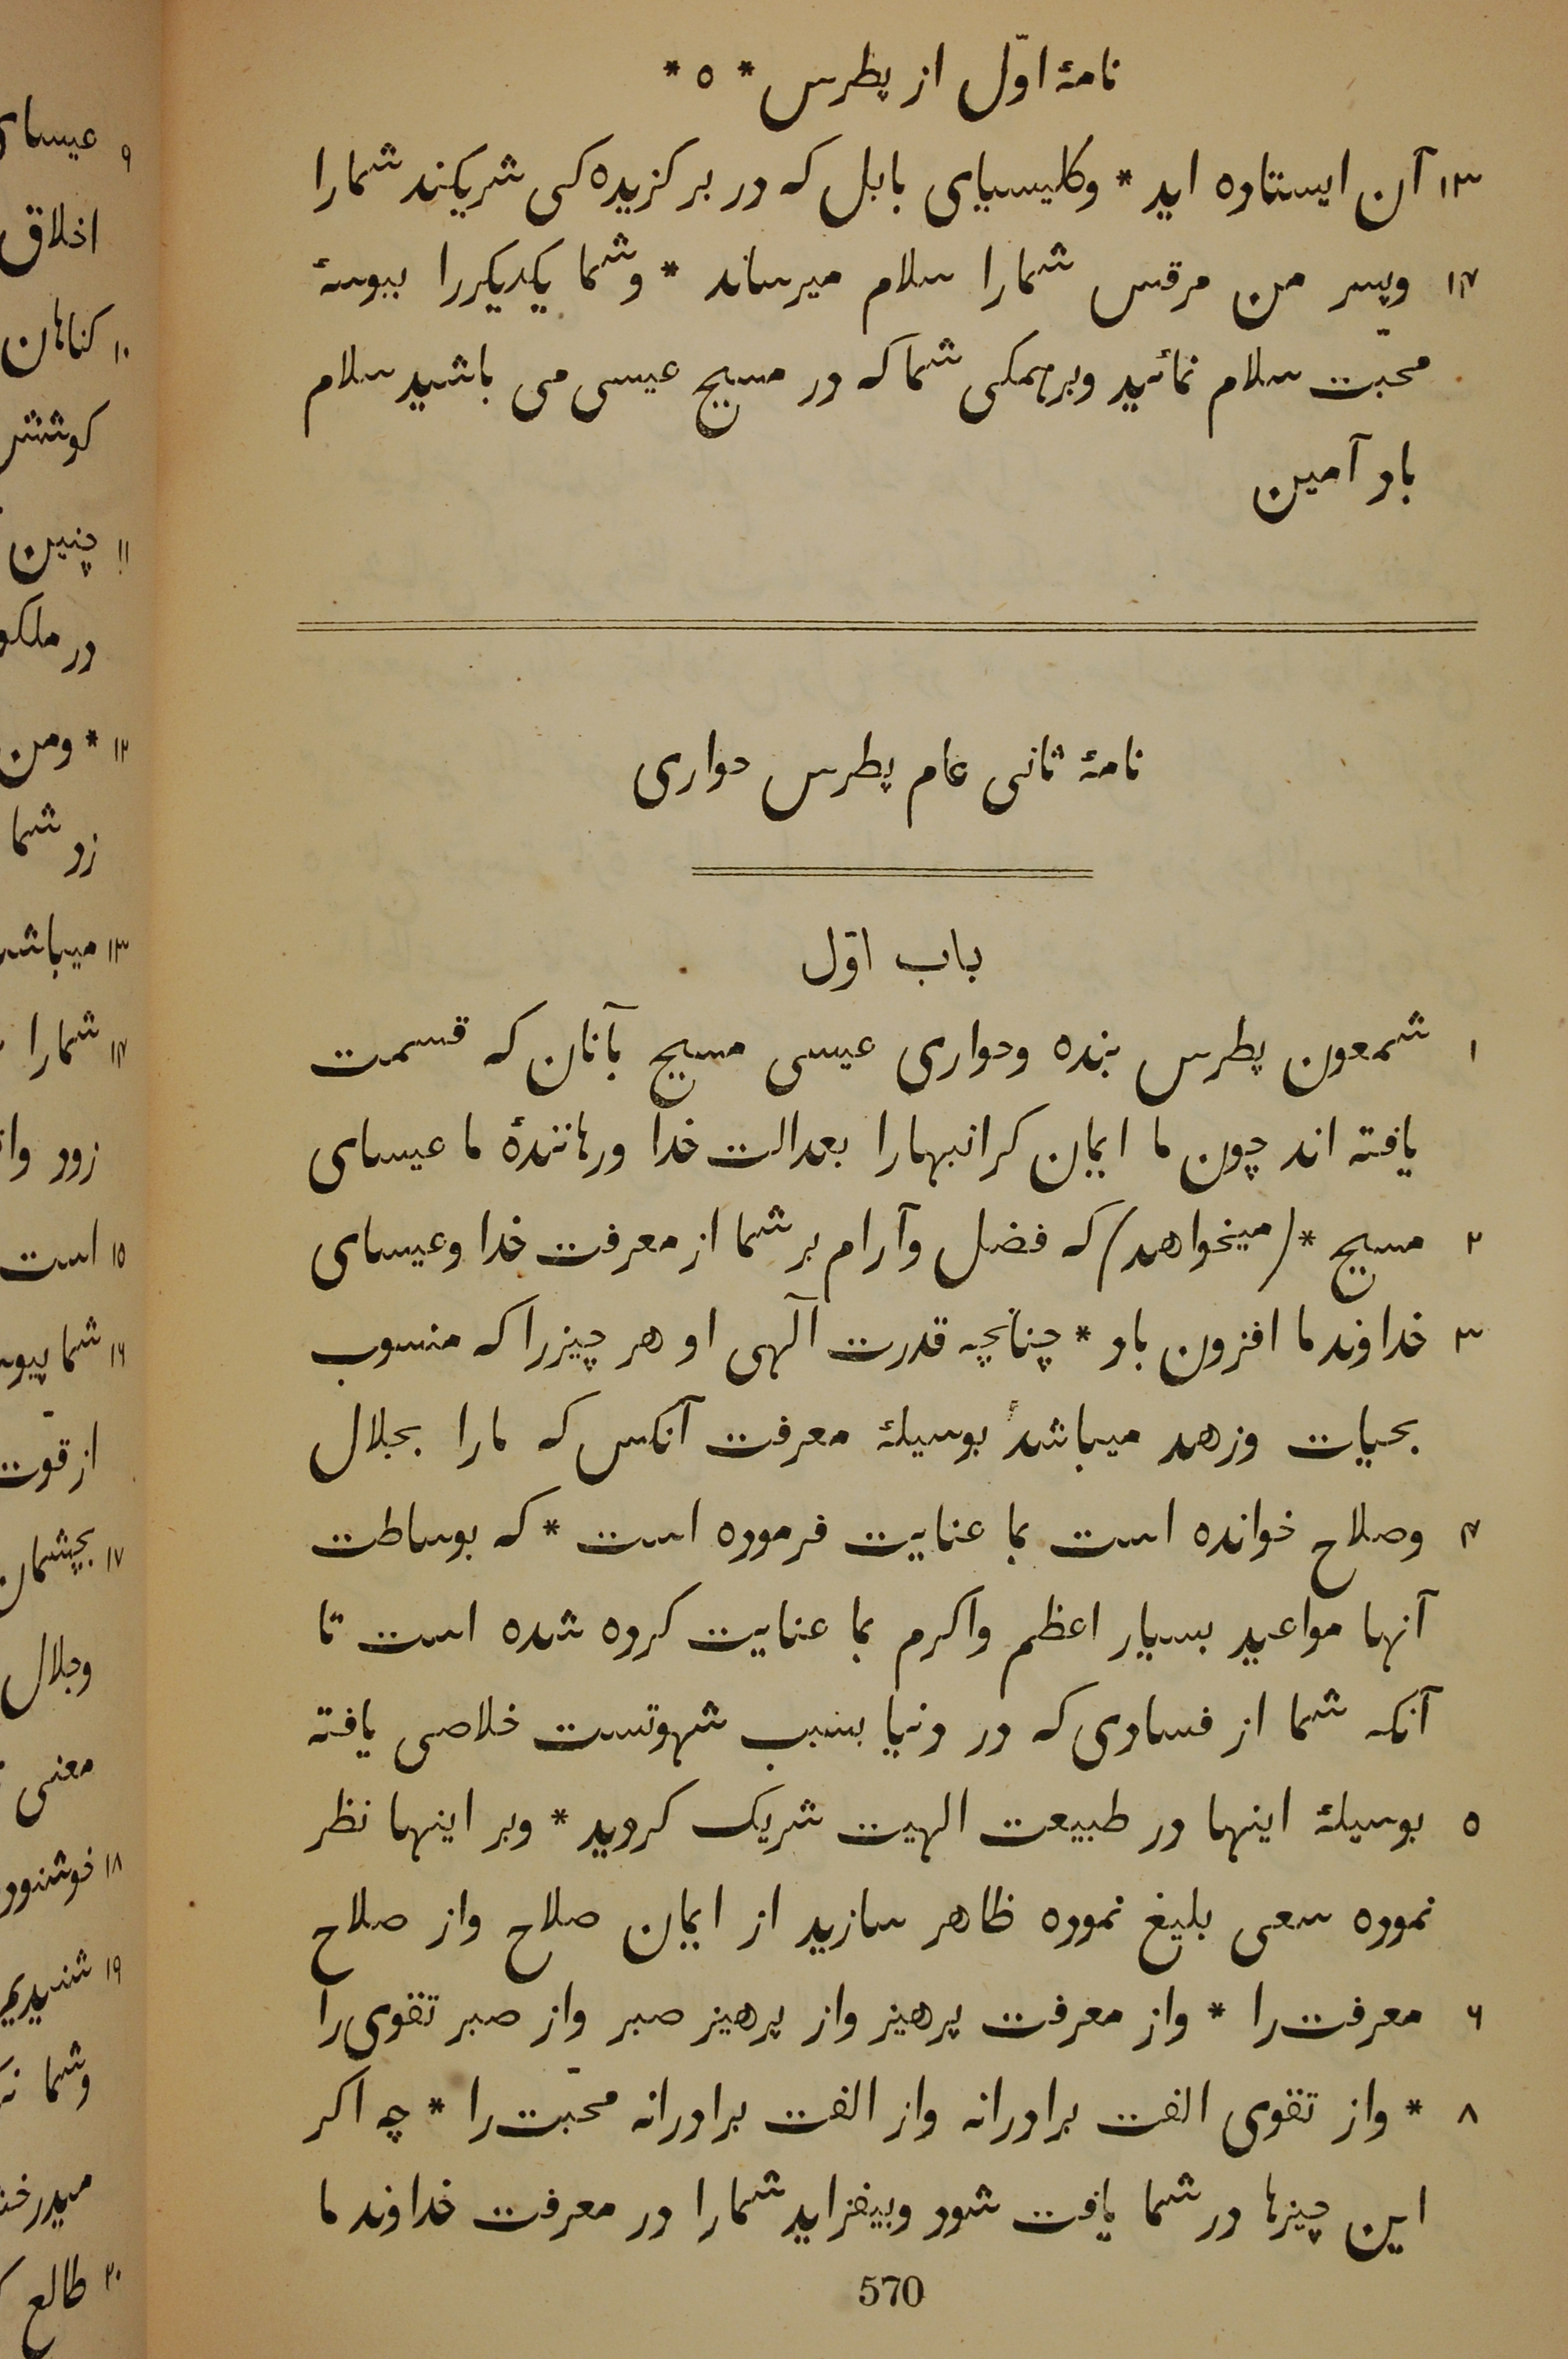 نامهٔ اوّل از پطرس * ۵ *
۱۳ آن ایستاده اید * وکلیسیای بابل که در برکزیده‌کی شریکند شمارا
۱۴ وپسر من مرقس شمارا سلام میرساند * وشما یکدیکررا ببوسهٔ
محبّت سلام نمائید وبرهمکی شما که در مسیح عیسی می باشید سلام
باد آمین
نامهٔ ثانی عام پطرس حواری
باب اوّل
۱ شمعون پطرس بنده وحواری عیسی مسیح بآنان که قسمت
یافته اند چون ما ایمان کرانبهارا بعدالت خدا ورهانندهٔ ما عیسای
۲ مسیح * (میخواهد) که فضل وآرام بر شما از معرفت خدا وعیسای
۳ خداوند ما افزون باد * چنانچه قدرت آلهی او هر چیزرا که منسوب
بحیات وزهد میباشد بوسیلهٔ معرفت آنکس که مارا بجلال
۴ وصلاح خوانده است بما عنایت فرموده است * که بوساطت
آنها مواعید بسیار اعظم واکرم بما عنایت کرده شده است تا
آنکه شما از فسادی که در دنیا بسبب شهوتست خلاصی یافته
۵ بوسیلهٔ اینها در طبیعت الهیت شریک کردید * وبر اینها نظر
نموده سعی بلیغ نموده ظاهر سازید از ایمان صلاح واز صلاح
۶ معرفت را * واز معرفت پرهیز واز پرهیز صبر واز صبر تقوی را
۸ * واز تقوی الفت برادرانه واز الفت برادرانه محبّت را * چه اکر
این چیزها در شما یافت شود وبیفزاید شمارا در معرفت خداوند ما
570
۹ عیسای
اخلاق
۱۰ کناهان
کوشش
۱۱ چنین
در ملکو
۱۲ * ومن
زد شما
۱۳ میباشد
۱۴ شمارا
زود وا
۱۵ است
۱۶ شما پیو
از قوّت
۱۷ بچشمان
وجلال
معنی
۱۸ خوشنود
۱۹ شنیدیم
وشما
میدرخ
۲۰ طالع